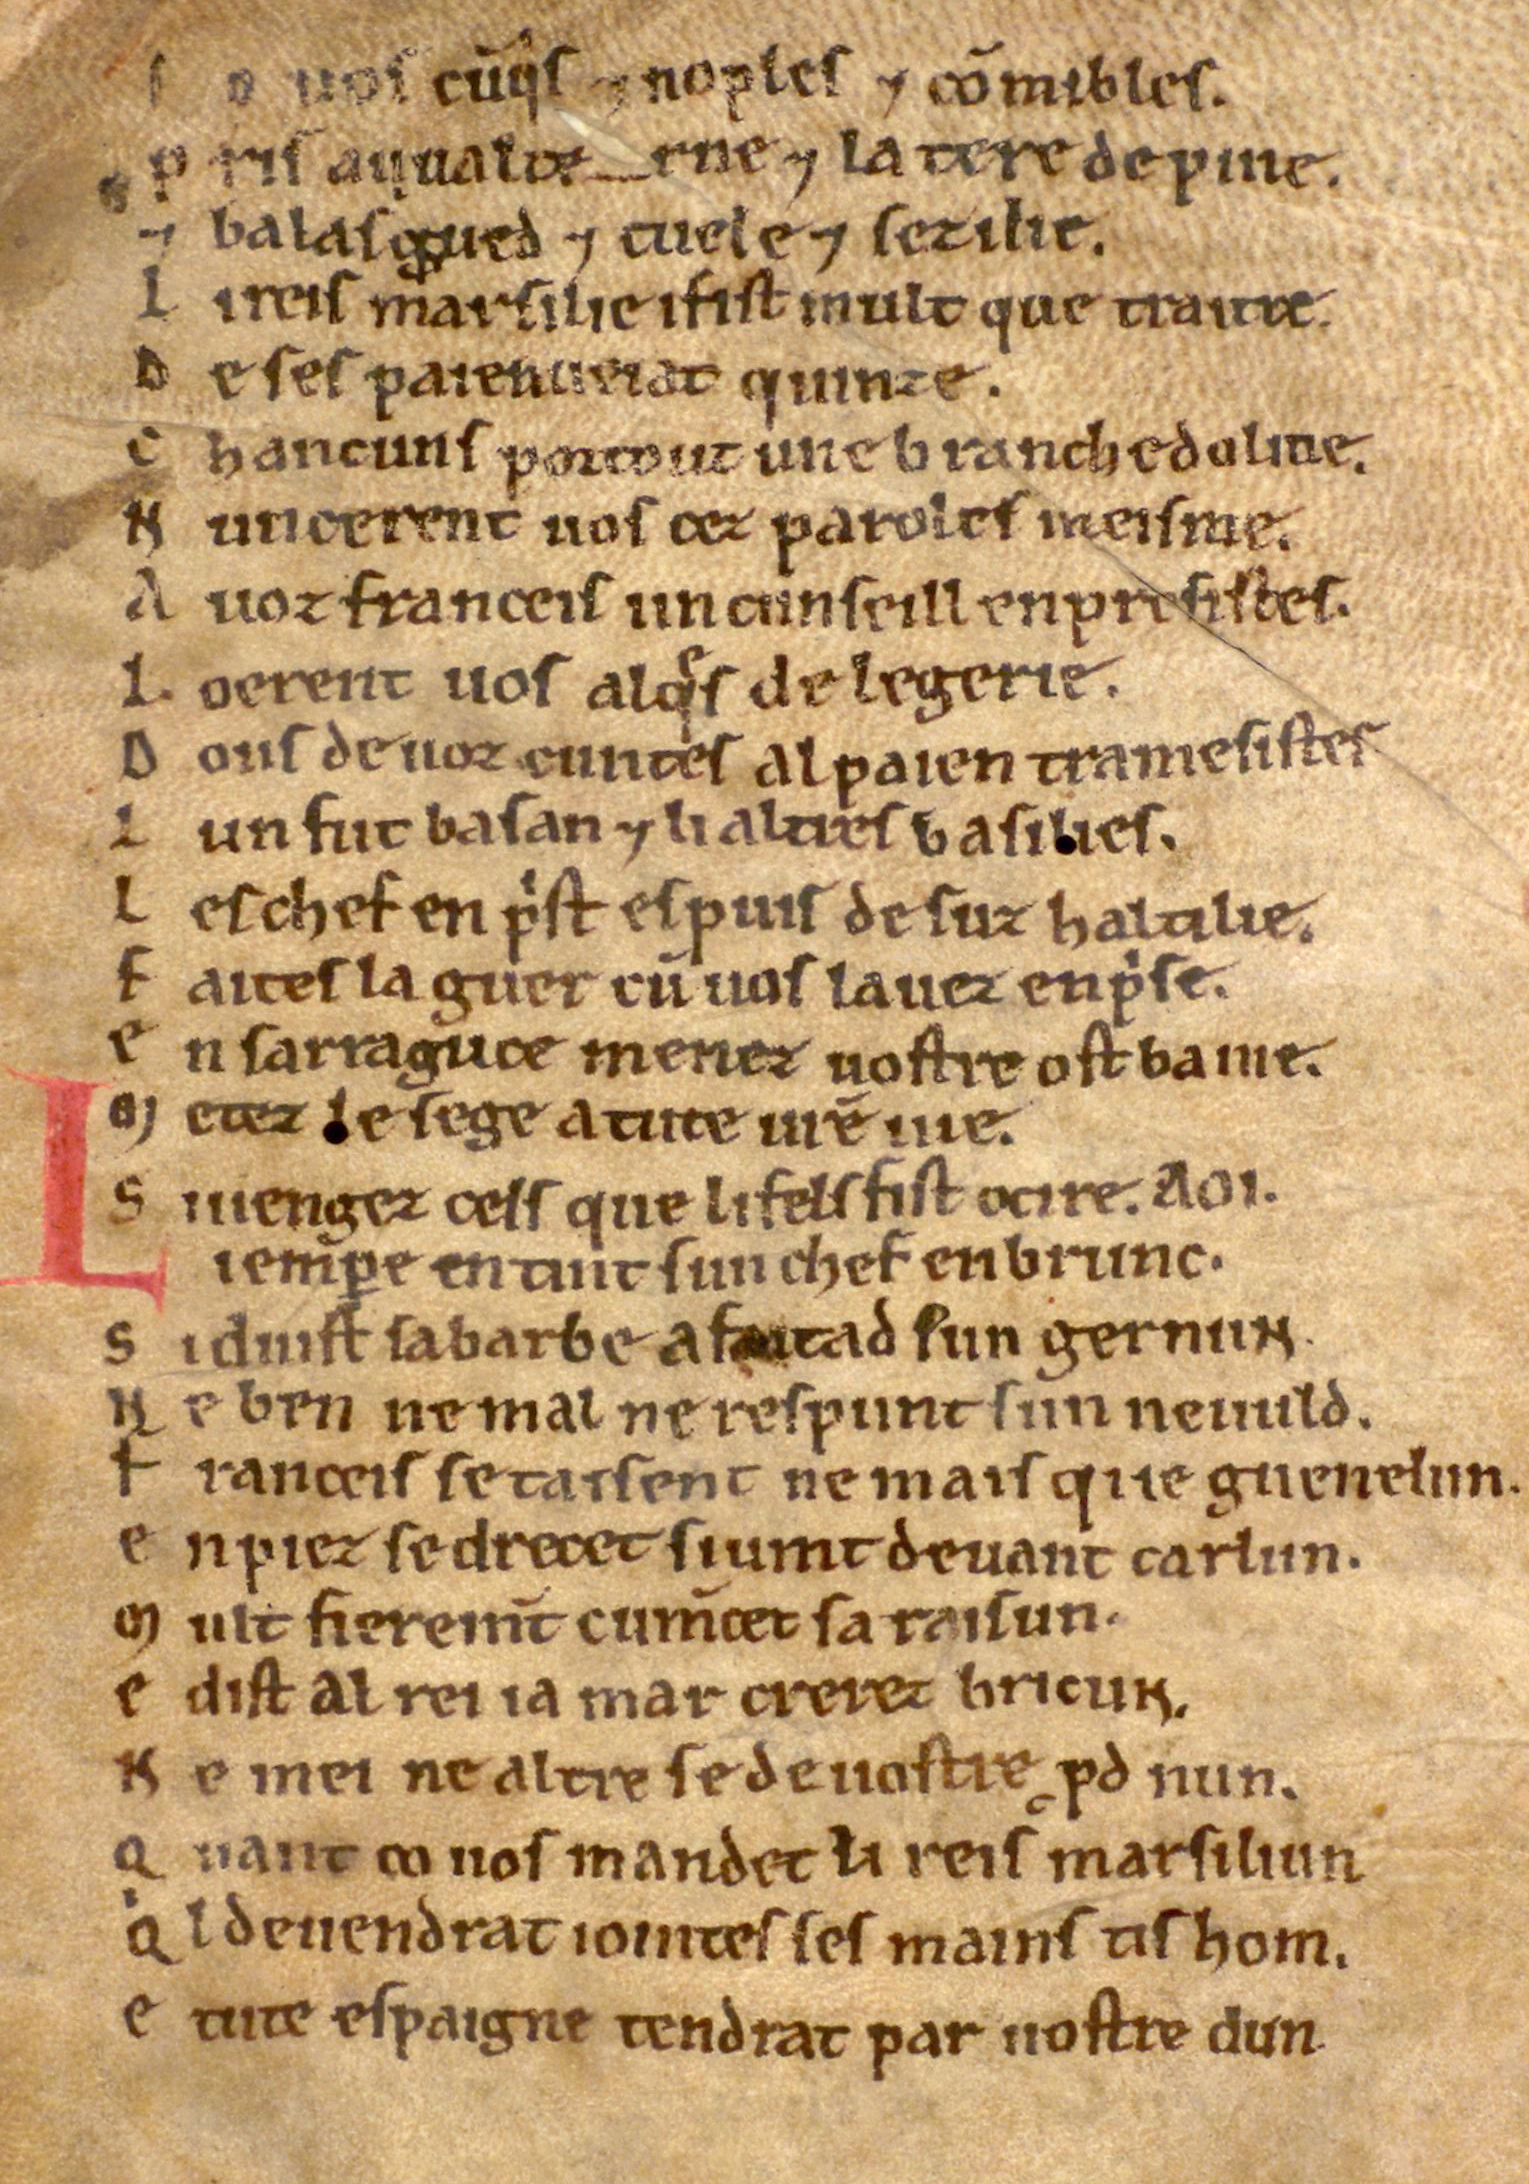 J o uos cūq̇s ⁊ noples ⁊ cōmibles.
P ris ai ualt̾ erne ⁊ la tere de pine.
⁊ balasgued ⁊ tuele ⁊ sezilie.
L i reis marsilie i fist mult que traitre.
D e ses paien ueiat quinze.
C hancuns portout une branche doliue.
N uncerent uos cez paroles meisme.
A uoz franceis un cunseill en presistes.
L oerent uos alqͤs de legerie.
D ous de uoz cuntes al paien tramesistes
L un fut basan ⁊ li altres basilies.
L es chef en pͥst es puis desuz haltilie.
F aites la guer cū uos lauez enpͥse.
E n sarraguce menez uostre ost banie.
M etez le sege a tute ur̄e uie.
S i uengez cels que li fels fist ocire. AOI.
L i emꝑe en tint sun chef enbrunc.
S i duist sa barbe afaitad sun gernun.
N e ben ne mal ne respunt sun neuuld.
F ranceis se taisent ne mais que guenelun.
E n piez se drecet si uint deuant carlun.
M ult fierem̄t cum̄cet sa raisun.
E dist al rei ia mar crerez bricun.
N e mei ne altre se de uostre ꝓd nun.
Q uant co uos mandet li reis marsiliun
Qͥ l deuendrat iointes ses mains tis hom.
E tute espaigne tendrat par uostre dun